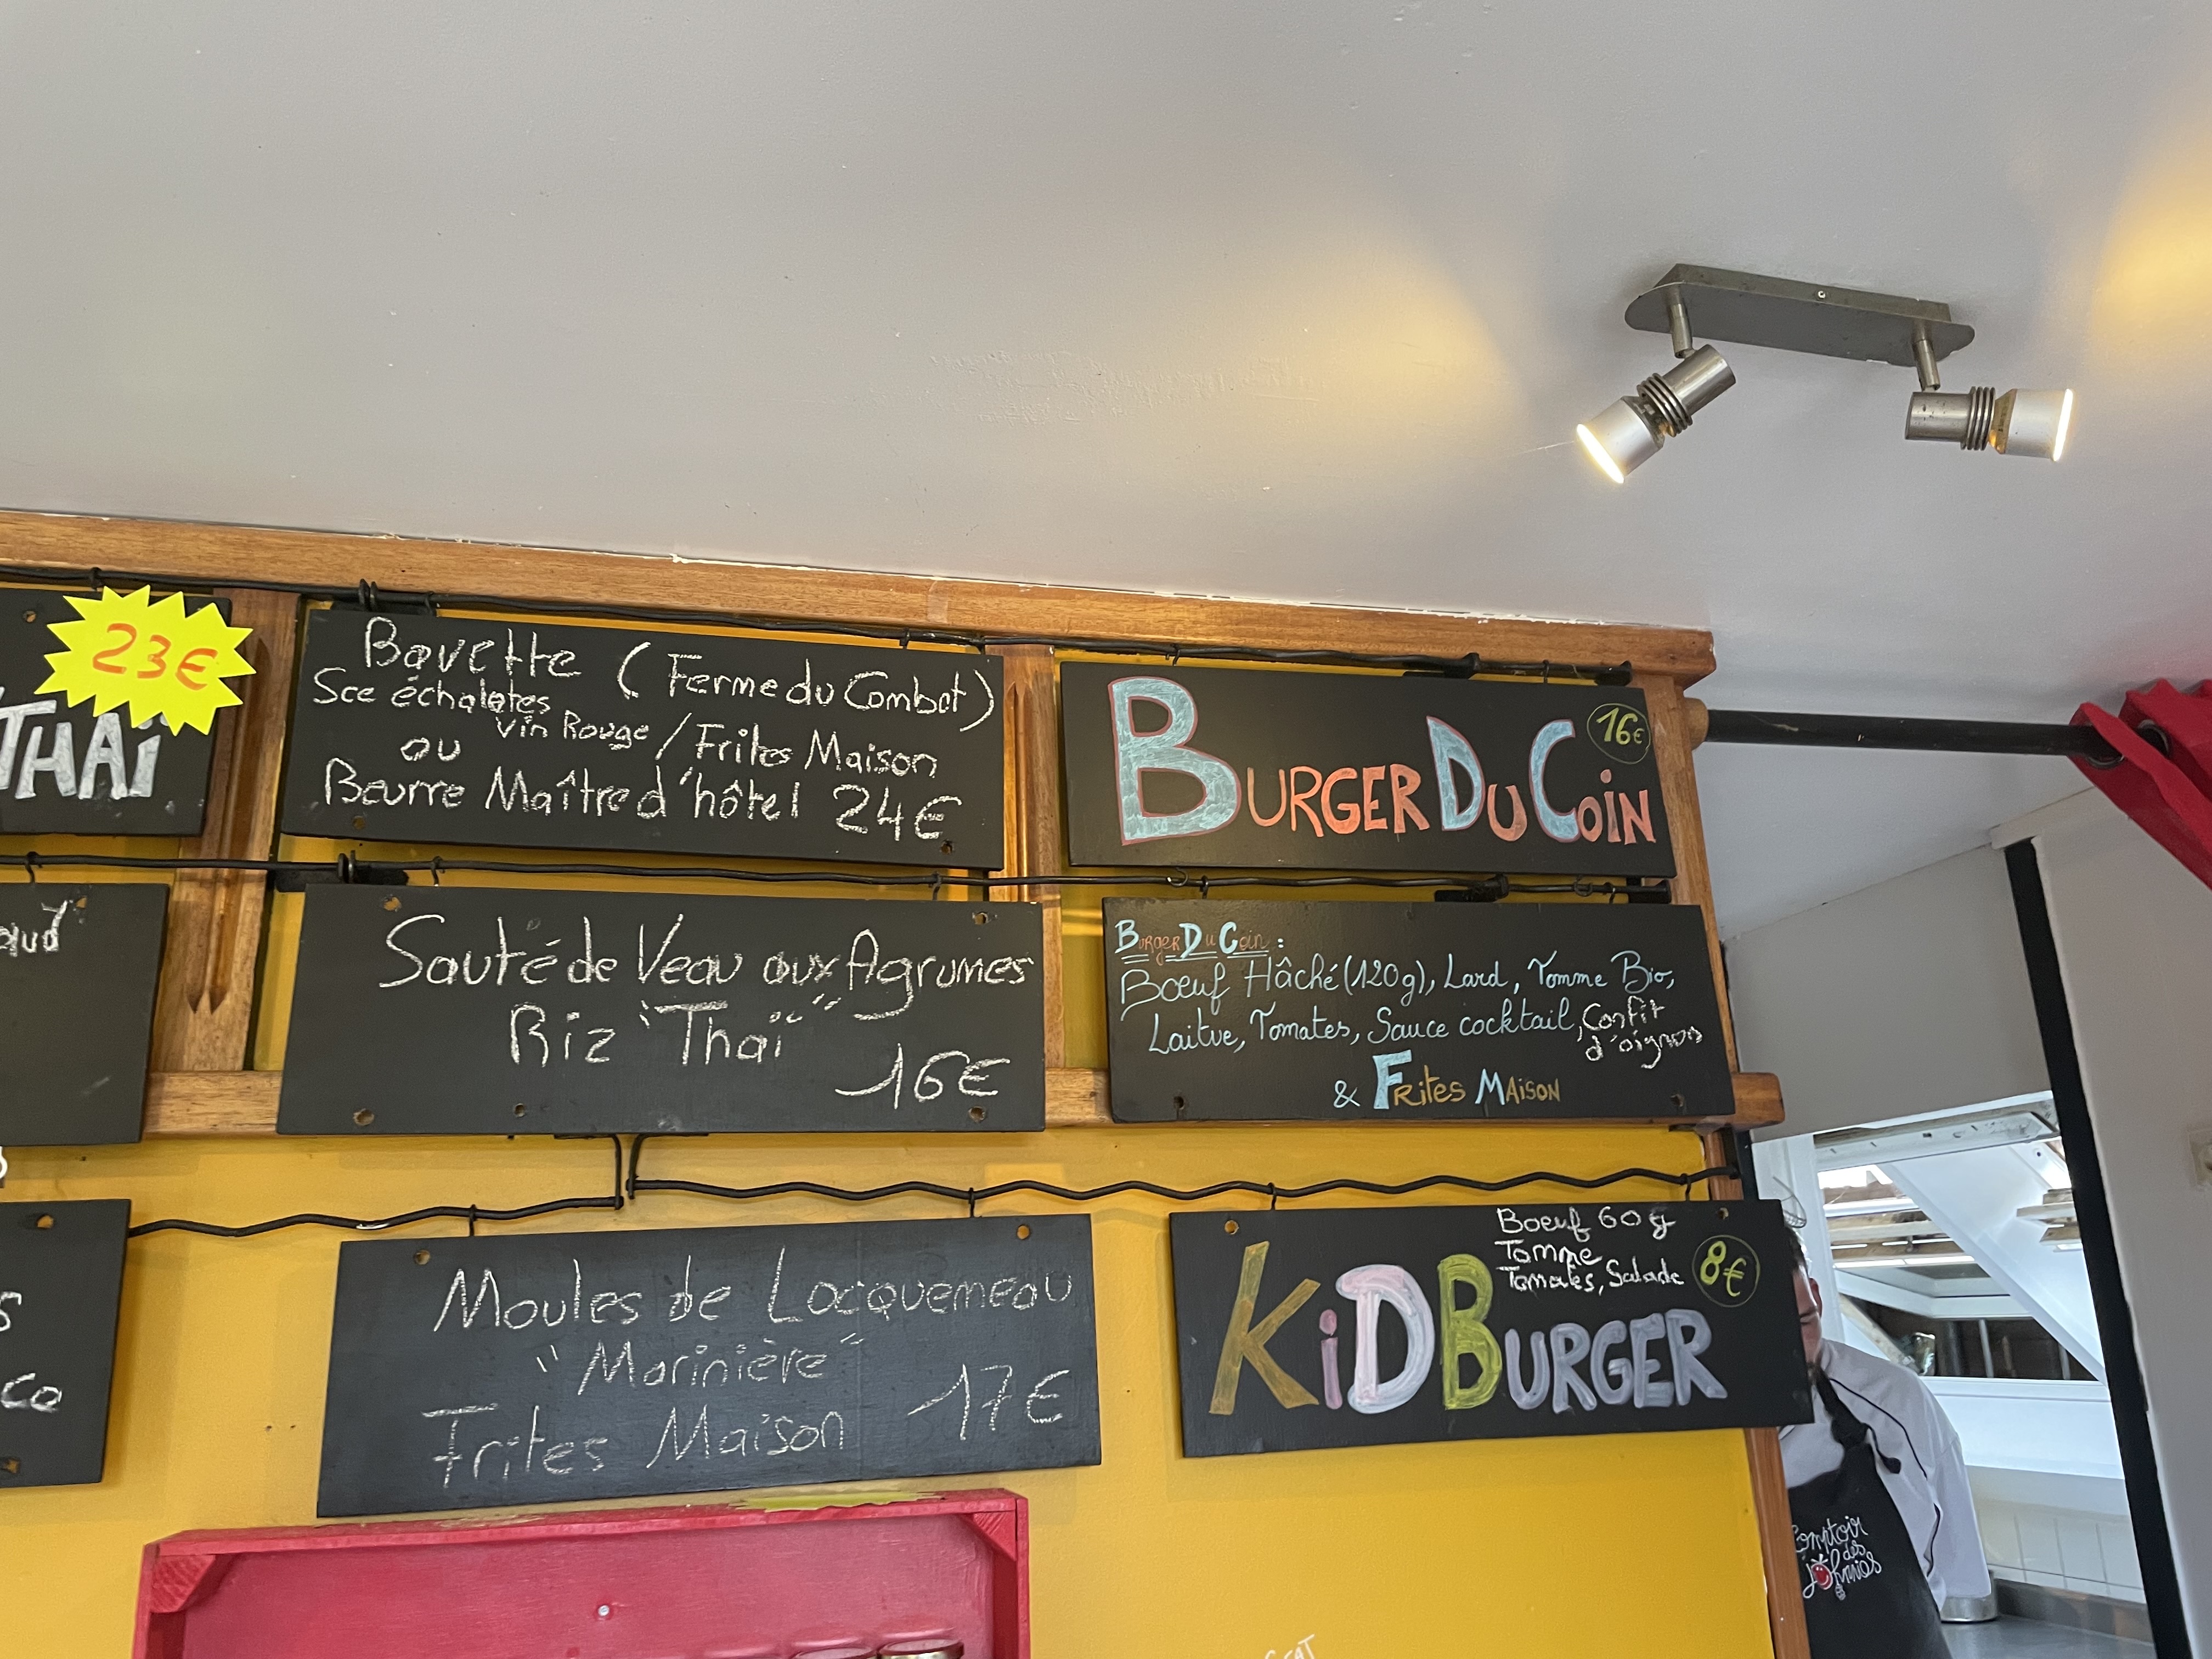 23€
THAÏ
Bavette (Ferme du Combot)
Sce échalotes
Vin Rouge / Frites Maison
ou
Beurre Maître d'hôtel 24€
BURGER DU COIN
16€
Sauté de Veau aux Agrumes
Riz "Thaï"
16€
BURGER DU COIN :
Bœuf Hâché (120g), Lard, Tomme Bio,
Laitue, Tomates, Sauce cocktail, Confit
d'oignons
& FRites MAiSON
s
co
Moules de Locquemeau
"Marinière"
Frites Maison 17€
Boeuf 60g
Tomme
Tomates, Salade
8€
KiDBURGER
Comptoir
des
Johnnies